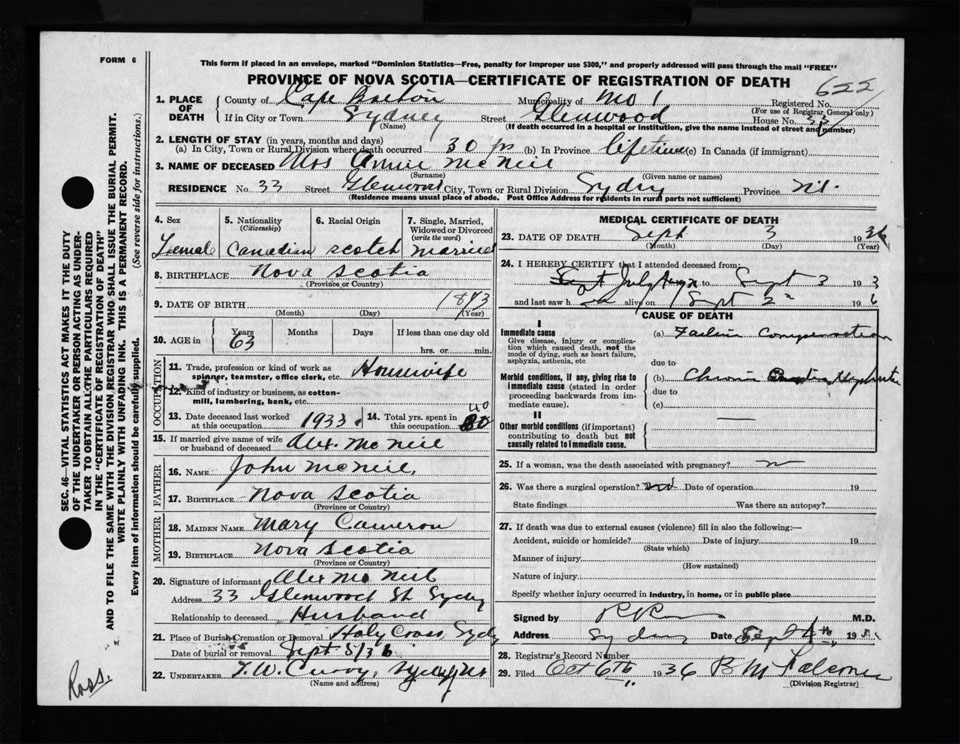 FORM 6
This form if placed in an envelope, marked "Dominion Statistics—Free, penalty for improper use $300," and properly addressed will pass through the mail "FREE"
PROVINCE OF NOVA SCOTIA—CERTIFICATE OF REGISTRATION OF DEATH
622
1. PLACE OF DEATH
County of Cape Breton Municipality of No 1 Registered No.
(For use of Registrar General only)
If in City or Town Sydney Street Glenwood House No. 33
(Name) (If death occurred in a hospital or institution, give the name instead of street and number)
2. LENGTH OF STAY (in years, months and days)
(a) In City, Town or Rural Division where death occurred 30 yrs (b) In Province lifetime (c) In Canada (if immigrant)
3. NAME OF DECEASED Mrs Annie McNeil
(Surname) (Given name or names)
RESIDENCE No. 33 Street Glenwood City, Town or Rural Division Sydney Province N.S.
(Residence means usual place of abode. Post Office Address for residents in rural parts not sufficient)
4. Sex Female
5. Nationality (Citizenship) Canadian
6. Racial Origin Scotch
7. Single, Married, Widowed or Divorced (write the word) Married
8. BIRTHPLACE Nova Scotia
(Province or Country)
9. DATE OF BIRTH 1873
(Month) (Day) (Year)
10. AGE in Years 63 Months Days If less than one day old
hrs. or min.
OCCUPATION
11. Trade, profession or kind of work as spinner, teamster, office clerk, etc. Housewife
12. Kind of industry or business, as cotton-mill, lumbering, bank, etc.
13. Date deceased last worked at this occupation 1933
14. Total yrs. spent in this occupation 40
15. If married give name of wife or husband of deceased Alex McNeil
FATHER
16. NAME John McNeil
17. BIRTHPLACE Nova Scotia
(Province or Country)
MOTHER
18. MAIDEN NAME Mary Cameron
19. BIRTHPLACE Nova Scotia
(Province or Country)
20. Signature of informant Alex McNeil
Address 33 Glenwood St Sydney
Relationship to deceased Husband
21. Place of Burial, Cremation or Removal Holy Cross, Sydney
Date of burial or removal Sept 5/36
22. UNDERTAKER T.W. Curry, Sydney NS
(Name and address)
MEDICAL CERTIFICATE OF DEATH
23. DATE OF DEATH Sept 3 1936
(Month) (Day) (Year)
24. I HEREBY CERTIFY that I attended deceased from:
July to Sept 3 193
and last saw h alive on Sept 2 1 6
CAUSE OF DEATH
I
Immediate cause
Give disease, injury or complication which caused death, not the mode of dying, such as heart failure, asphyxia, asthenia, etc
(a) Failing Compensation
due to
Morbid conditions, if any, giving rise to immediate cause (stated in order proceeding backwards from immediate cause).
(b) Chronic
due to
(c)
II
Other morbid conditions (if important) contributing to death but not causally related to immediate cause.
25. If a woman, was the death associated with pregnancy?
26. Was there a surgical operation? no Date of operation 19
State findings Was there an autopsy?
27. If death was due to external causes (violence) fill in also the following:—
Accident, suicide or homicide? Date of injury 19
(State which)
Manner of injury
(How sustained)
Nature of injury
Specify whether injury occurred in industry, in home, or in public place
Signed by M.D.
Address Sydney Date Sept 4th 19
28. Registrar's Record Number
29. Filed Oct 6th 1936 B M Falconer
(Division Registrar)
SEC. 46—VITAL STATISTICS ACT MAKES IT THE DUTY OF THE UNDERTAKER OR PERSON ACTING AS UNDERTAKER TO OBTAIN ALL THE PARTICULARS REQUIRED IN THE "CERTIFICATE OF REGISTRATION OF DEATH"
AND TO FILE THE SAME WITH THE DIVISION REGISTRAR WHO SHALL ISSUE THE BURIAL PERMIT.
WRITE PLAINLY WITH UNFADING INK. THIS IS A PERMANENT RECORD.
Every item of information should be carefully supplied. (See reverse side for instructions.)
Ross.